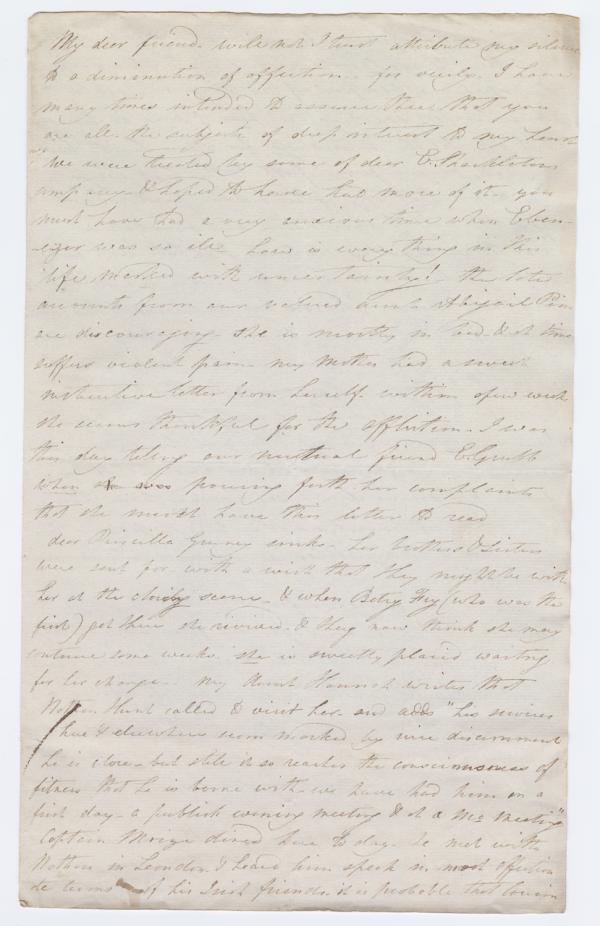 My dear friend will not I trust attribute my silence
to a diminution of affection - for verily I have
many times intended to assure thee that you
are all the subjects of deep interest to my heart
we were treated by some of dear E. Shackletons
company & hoped to have had more of it - you
must have had a very anxious time when Eben-
-ezer was so ill. how is every thing in this
life marked with uncertainty! the late
accounts from our valued aunt Abigail Pim
are discouraging. she is mostly in bed & at times
suffers violent pain - my Mother had a sweet
instructive letter from herself within a few weeks
she seems thankful for the affliction. I was
this day telling our mutual friend E. Grubb
when she was pouring forth her complaints
that she must have this letter to read
dear Priscilla Gurney sinks. her brothers & Sisters
were sent for with a wish that they might be with
her at the closing scene - & when Betsy Fry (who was the
first) got there she revived. & they now think she may
continue some weeks. she is sweetly placid waiting
for her change - my Aunt Hannah writes that
Nathan Hunt called to visit her - and adds "his services
here & elsewhere seem marked by nice discernment
he is close - but still it so reaches the consciousness of
fitness that he is borne with - we have had him on a
first day - a publick evening meeting & at a Mo. meeting"
Captain dined here to day. he met with
Nathan in London. I heard him speak in most affection
ate terms of his Irish friends. it is probable that cousin